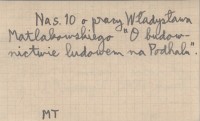 Na s. 10 o pracy Władysława
Matlakowskiego "O budow-
nictwie ludowem na Podhalu".
MT